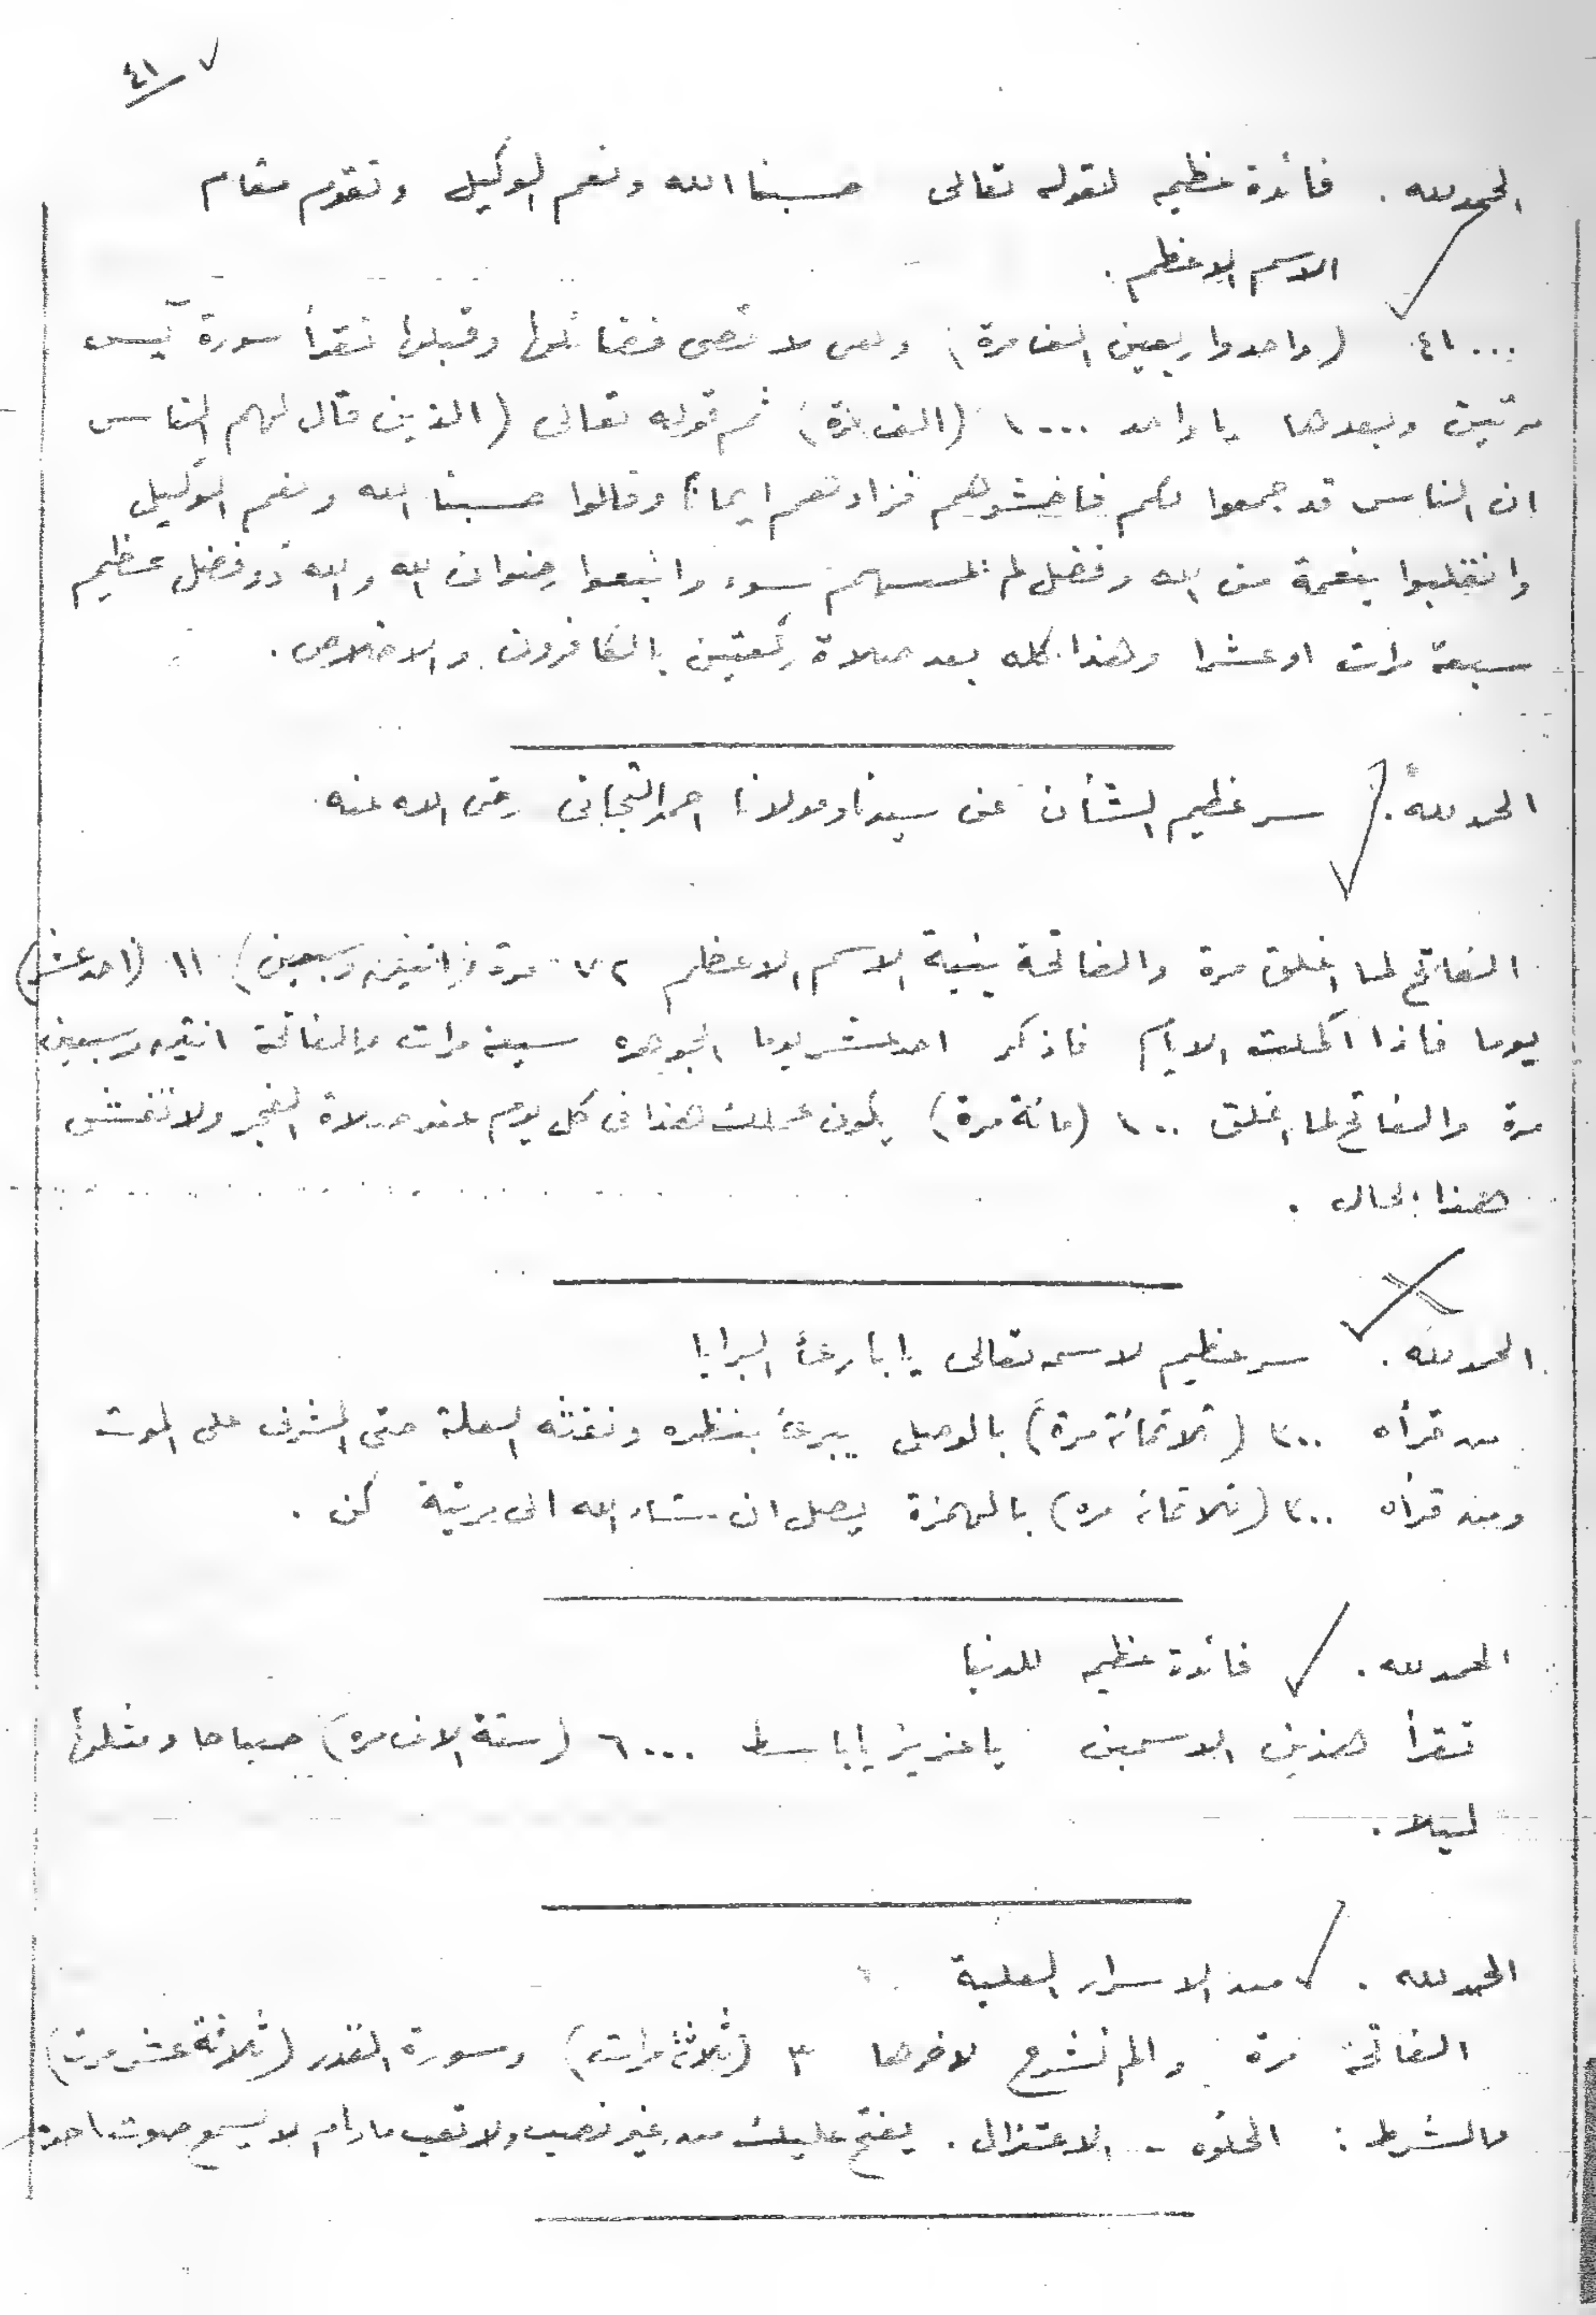 ٤١
الحمد لله . فائدة عظيم لقوله تعالى حسبنا الله ونعم الوكيل وتقوم مقام
الاسم الاعظم .
٤١٠٠٠ (واحد واربعين الف مرة) ولا تحصى فضائلها وقبلها تقرأ سورة يس
مرتين وبعدها يا واحد ١٠٠٠ (الف مرة) ثم قوله تعالى (الذين قال لهم الناس
ان الناس قد جمعوا لكم فاخشوهم فزادهم ايمانا وقالوا حسبنا الله ونعم الوكيل
وانقلبوا بنعمة من الله وفضل لم يمسسهم سوء واتبعوا رضوان الله والله ذو فضل عظيم
سبعة مرات او عشرا وهذا كله بعد صلاة ركعتين بالكافرون والاخلاص .
الحمد لله . سر عظيم الشأن عن سيدنا ومولانا احمد التجانى رضى الله عنه
الفاتح لما اغلق مرة والفاتحة بنية الاسم الاعظم ٧٢ مرة (اثنين وسبعين) ١١ (احد عشر)
يوما فاذا اكملت الايام فاذكر احد عشر يوما الجوهره سبعة مرات والفاتحة اثنين وسبعين
مرة والفاتح لما اغلق ١٠٠ (مائة مرة) يكون عملك هذا فى كل يوم عند صلاة الفجر ولا تفشى
هذا الحال .
الحمد لله . سر عظيم لاسمه تعالى يا بارئ البرايا
من قرأه ٣٠٠ (ثلاثمائة مرة) بالوصل يبرئ بنظره ونفثه العلة حتى المشرف على الموت
ومن قرأه ٣٠٠ (ثلاثمائة مره) بالهمزة يصل ان شاء الله الى مرتبة كن .
الحمد لله . فائدة عظيم للدنيا
تقرأ هذين الاسمين يا عزيز يا باسط ٦٠٠٠ (ستة الاف مره) صباحا ومثلها
ليلا .
الحمد لله . من الاسرار العلية
الفاتحة مرة والم نشرح لاخرها ٣ (ثلاث مرات) وسورة القدر (ثلاثة عشر مرة)
والشرط : الخلوه - الاعتزال . يفتح عليك من غير نصب ولا تعب مادام لا يسمع صوت احد